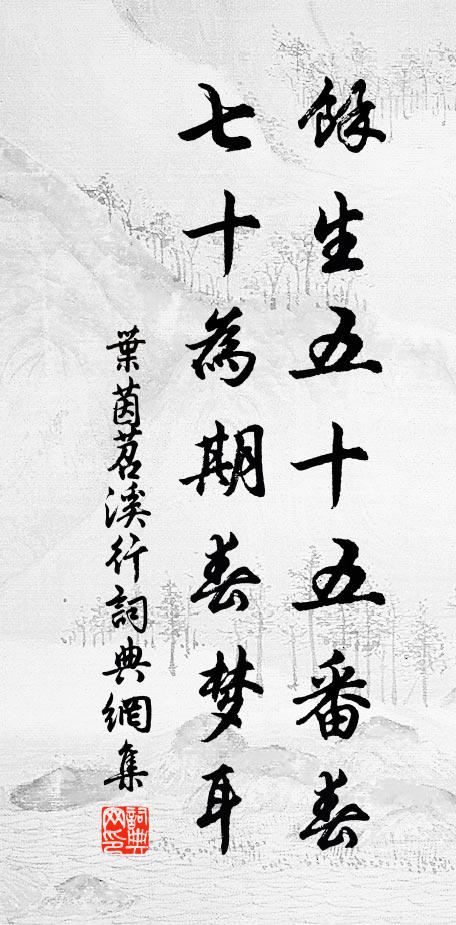 餘生五十五番春
七十為期春梦耳
葉茵苕溪行詞典網集
詞典网印